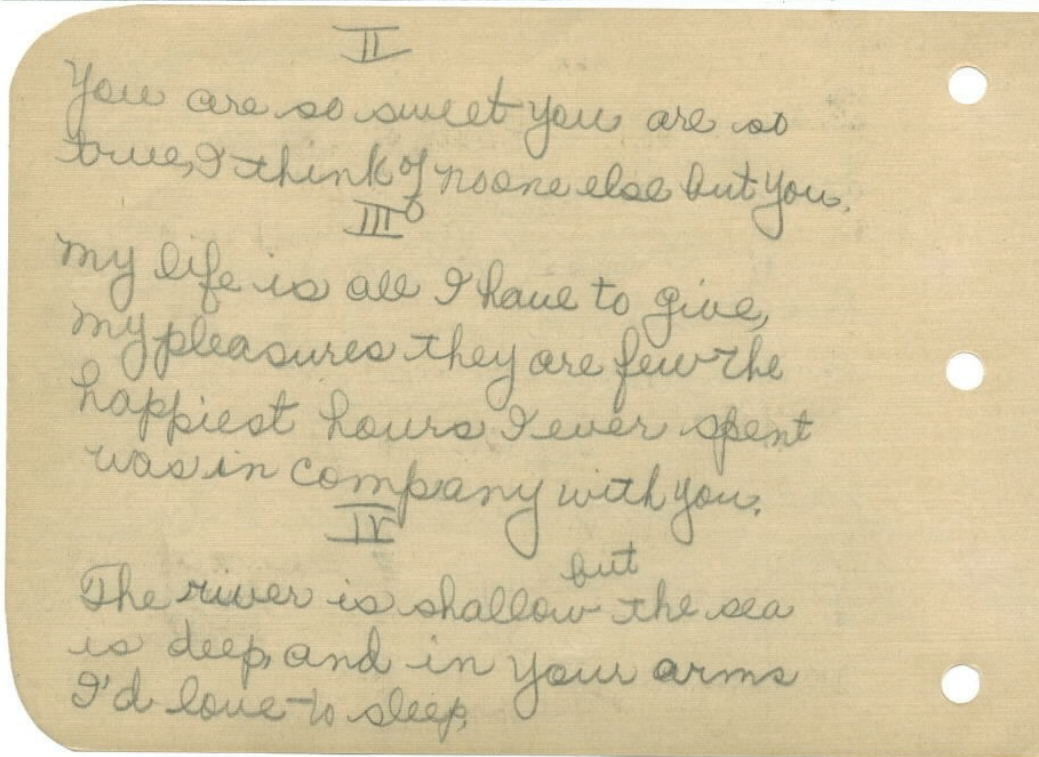 II
You are so sweet you are so
true, I think of no one else but you.
III
My life is all I have to give,
my pleasures they are few the
happiest hours I ever spent
was in company with you.
IV
but
The river is shallow the sea
is deep, and in your arms
I'd love to sleep,